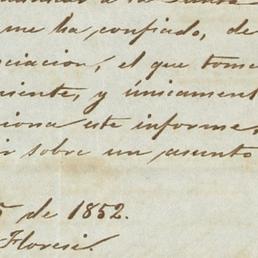 me ha confiado, de
ciacion, el que tome
niente, y únicament
ciona este informe,
ir sobre un asunto
5 de 1852.